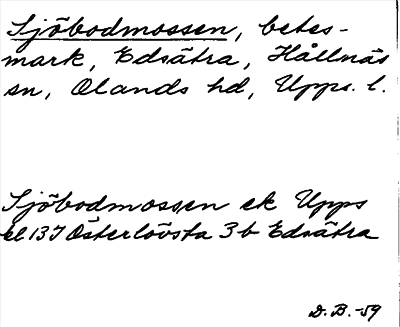 Sjöbodmossen, betes-
mark, Edsätra, Hållnäs
sn, Olands hd, Upps. l.
Sjöbodmossen ek Upps
bl 13I Österlövsta 3b Edsätra
D.B. -59